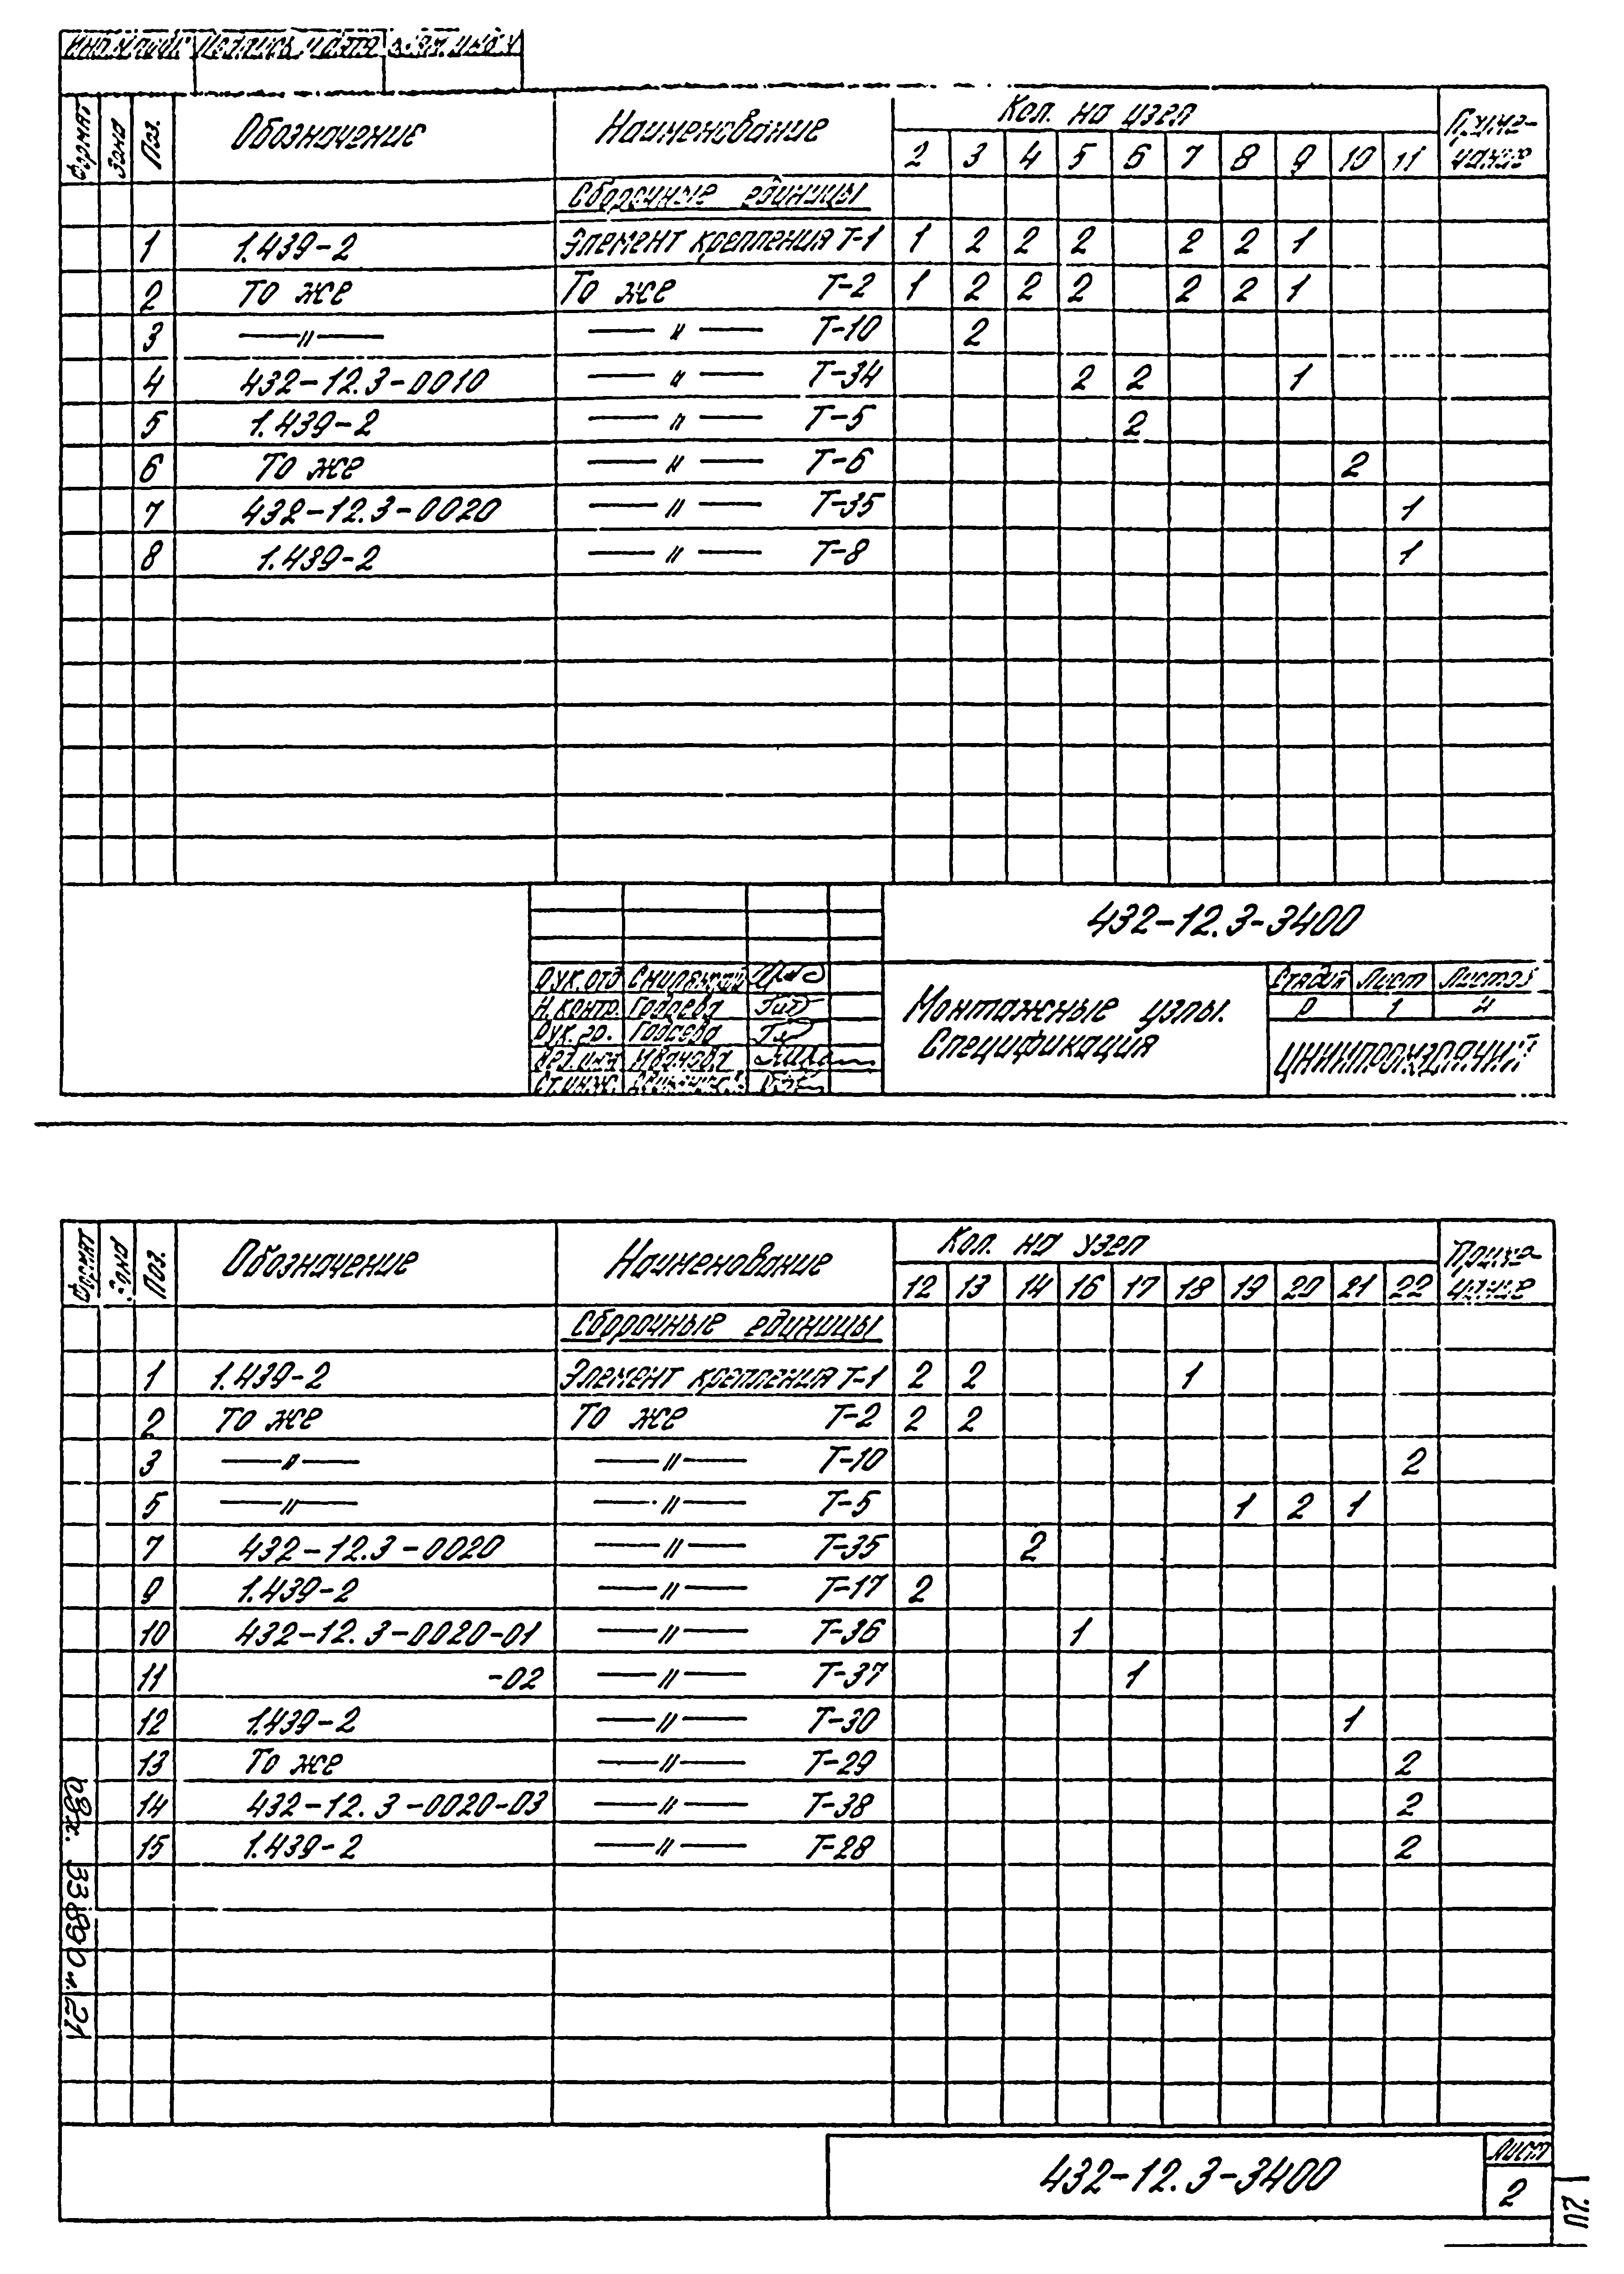 Инв.№ подл. Подпись и дата Взам. инв. №
Формат Зона Поз. Обозначение Наименование Кол. на узел Приме-
чание
2 3 4 5 6 7 8 9 10 11
Сборочные единицы
1 1.439-2 Элемент крепления Т-1 1 2 2 2 2 2 1
2 То же То же Т-2 1 2 2 2 2 2 1
3 —〃— —〃— Т-10 2
4 432-12.3-0010 —〃— Т-34 2 2 1
5 1.439-2 —〃— Т-5 2
6 То же —〃— Т-6 2
7 432-12.3-0020 —〃— Т-35 1
8 1.439-2 —〃— Т-8 1
432-12.3-3400
Рук. отд.
Н. контр. Годаева
Рук. гр. Годаева
Иванова
Ст. инж.
Монтажные узлы.
Спецификация
Стадия Лист Листов
Р 1 4
ЦНИИПРОМЗДАНИЙ
Формат Зона Поз. Обозначение Наименование Кол. на узел Приме-
чание
12 13 14 16 17 18 19 20 21 22
Сборочные единицы
1 1.439-2 Элемент крепления Т-1 2 2 1
2 То же То же Т-2 2 2
3 —〃— —〃— Т-10 2
5 —〃— —〃— Т-5 1 2 1
7 432-12.3-0020 —〃— Т-35 2
9 1.439-2 —〃— Т-17 2
10 432-12.3-0020-01 —〃— Т-36 1
11 -02 —〃— Т-37 1
12 1.439-2 —〃— Т-30 1
13 То же —〃— Т-29 2
14 432-12.3-0020-03 —〃— Т-38 2
15 1.439-2 —〃— Т-28 2
33890 л. 21
432-12.3-3400
Лист
2